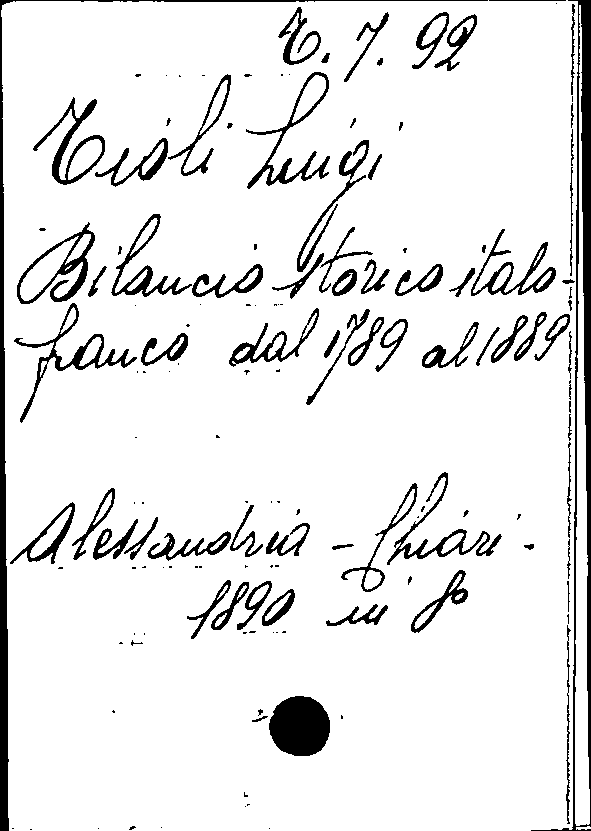 T. 7. 92
Tioli Luigi
Bilancio storico italo-
franco dal 1789 al 1889
Alessandria - Chiari -
1890 in 8º